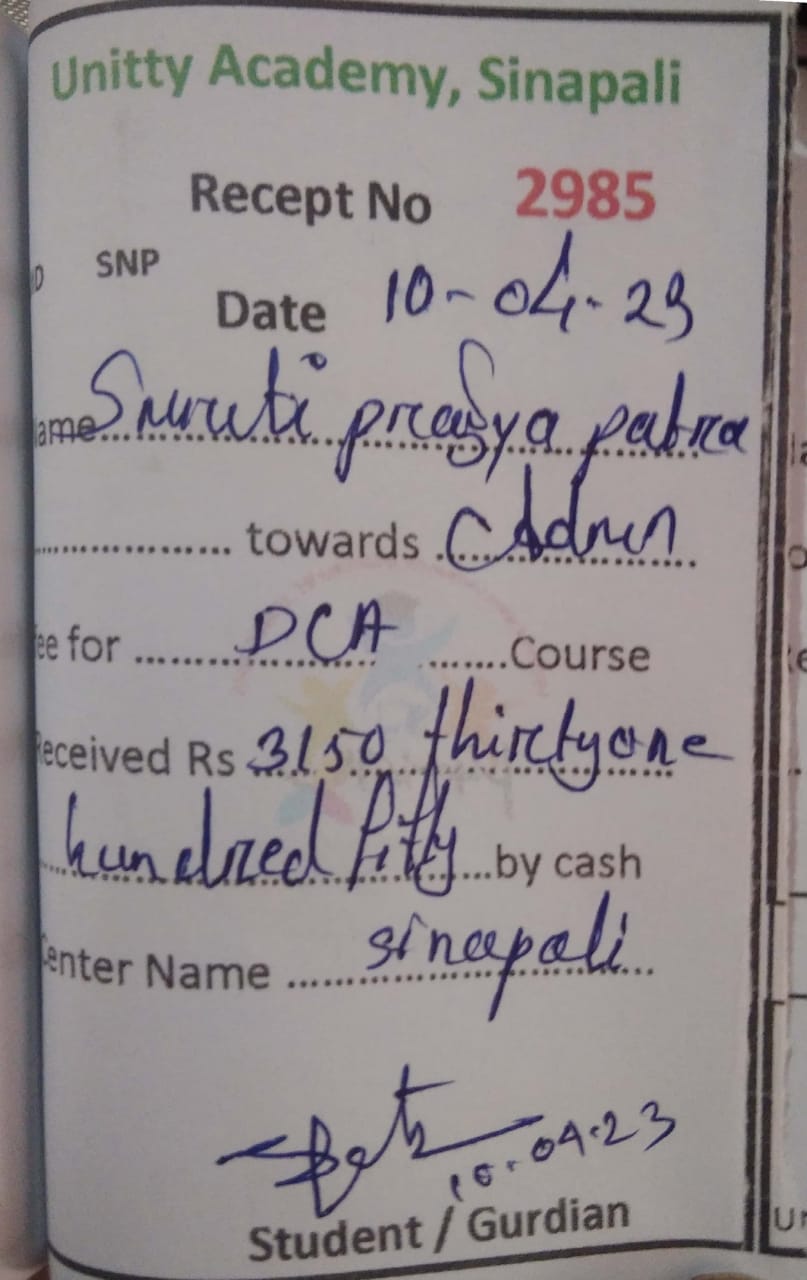 Unitty Academy, Sinapali
Recept No 2985
SNP
Date 10-04-23
ame Smruti pragya patra
towards
ee for DCA Course
eceived Rs 3150 thirtyone
hundred fifty by cash
enter Name sinapali
10.04.23
Student / Gurdian